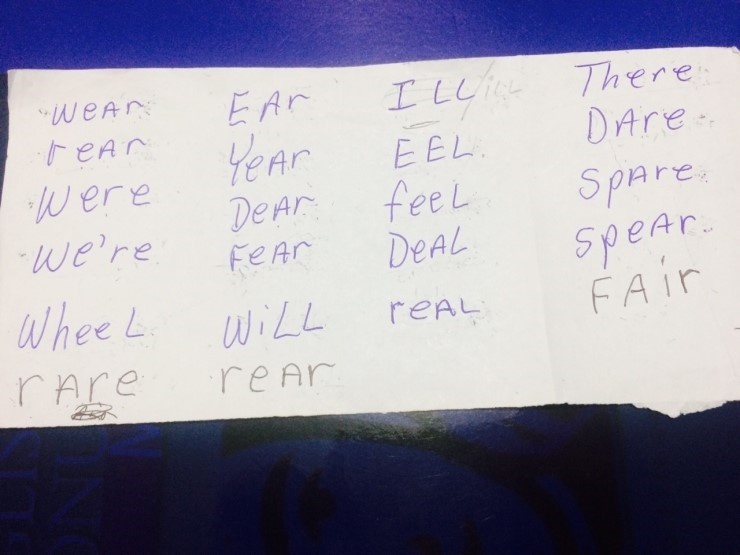 WeAr EAr ILL ill There
reAr YeAr EEL DAre
Were DeAr feeL SpAre
We're FeAr DeAL SpeAr
WheeL WiLL reAL FAir
rAre reAr